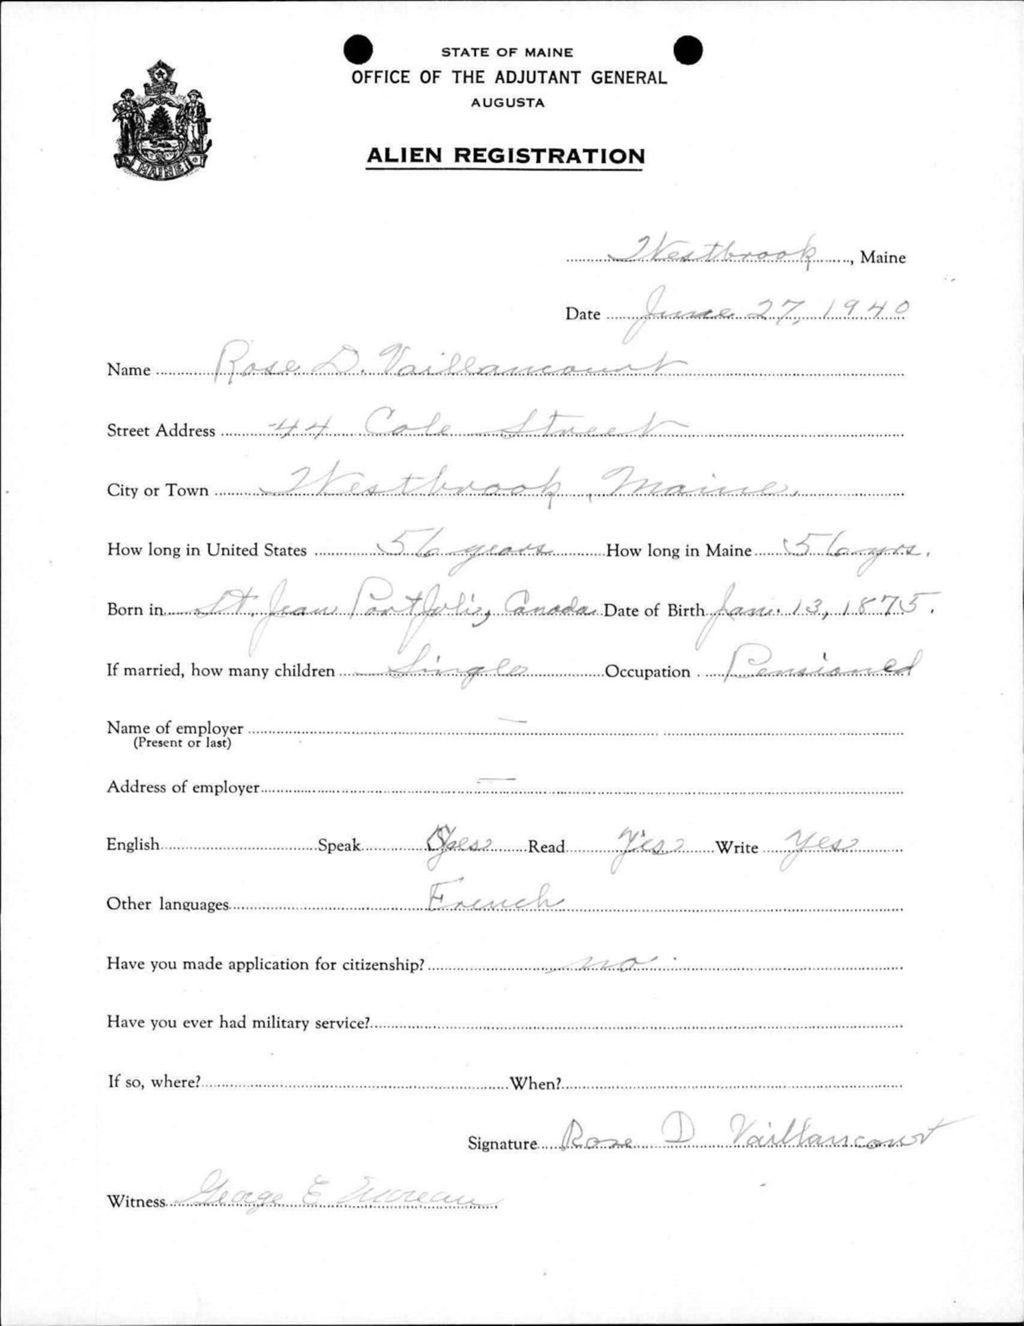 STATE OF MAINE
OFFICE OF THE ADJUTANT GENERAL
AUGUSTA
ALIEN REGISTRATION
MAINE
Westbrook, Maine
Date June 27, 1940
Name Rose D. Vaillancourt
Street Address 44 Cole Street
City or Town Westbrook, Maine.
How long in United States 56 years How long in Maine 56 yrs.
Born in St. Jean Portjoli, Canada Date of Birth Jan. 13, 1875.
If married, how many children Single Occupation Pensioned
Name of employer —
(Present or last)
Address of employer —
English Speak Yes Read Yes Write Yes
Other languages French
Have you made application for citizenship? no
Have you ever had military service?
If so, where? When?
Signature Rose D Vaillancourt
Witness George E